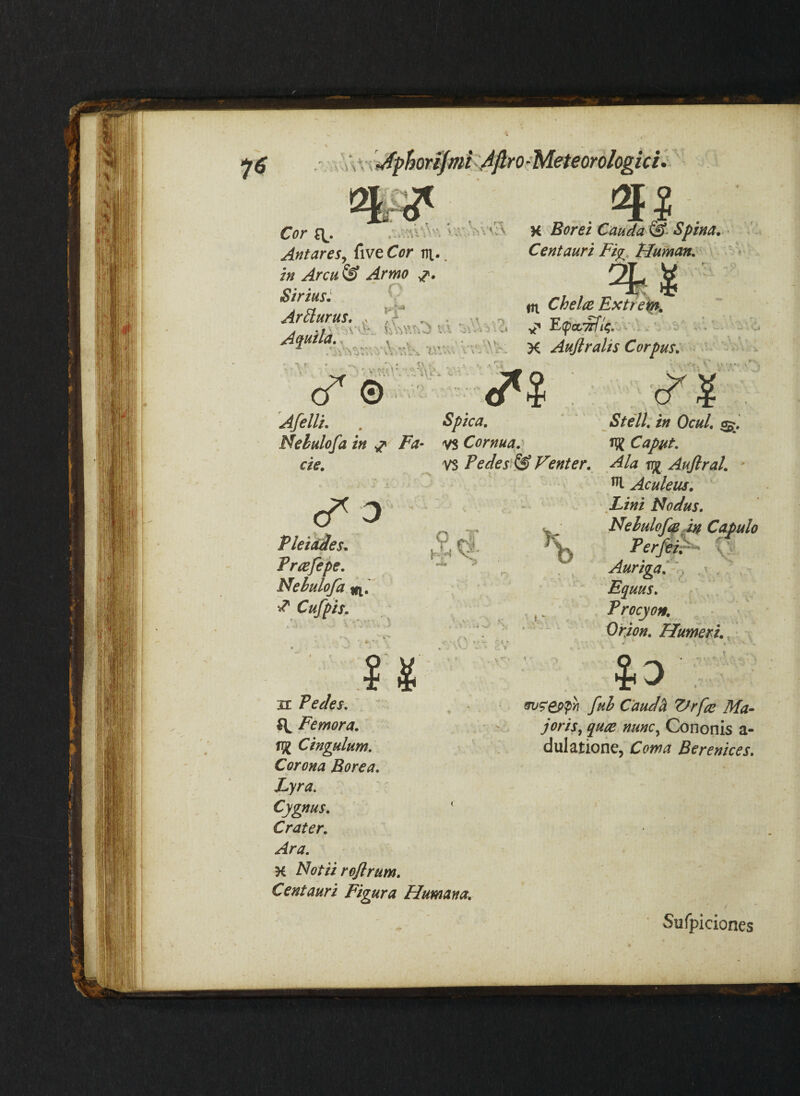 76 Aphoriſmi Aſtro-Meteorologici.
♃ ♂
Cor ♌.
Antares, ſive Cor ♏.
in Arcu & Armo ♐.
Sirius.
Arcturus.
Aquila.
♃ ♀
♓ Borei Cauda & Spina.
Centauri Fig. Human.
♃ ☿
♏ Chelæ Extrem.
♐ Ἐφαπτὶς.
♓ Auſtralis Corpus.
♂ ☉
Aſelli.
Nebuloſa in ♐ Fa-
cie.
♂ ☽
Pleiades.
Præſepe.
Nebuloſa ♏.
♐ Cuſpis.
♂ ♀
Spica.
♑ Cornua.
♑ Pedes & Venter.
♂ ☿
Stell. in Ocul. ♋.
♍ Caput.
Ala ♍ Auſtral.
♏ Aculeus.
Lini Nodus.
Nebuloſæ in Capulo
Perſei.
Auriga.
Equus.
Procyon.
Orion. Humeri.
♀ ☿
♊ Pedes.
♌ Femora.
♍ Cingulum.
Corona Borea.
Lyra.
Cygnus.
Crater.
Ara.
♓ Notii roſtrum.
Centauri Figura Humana.
♀ ☽
ſub Caudâ Urſæ Ma-
joris, quæ nunc, Cononis a-
dulatione, Coma Berenices.
Suſpiciones